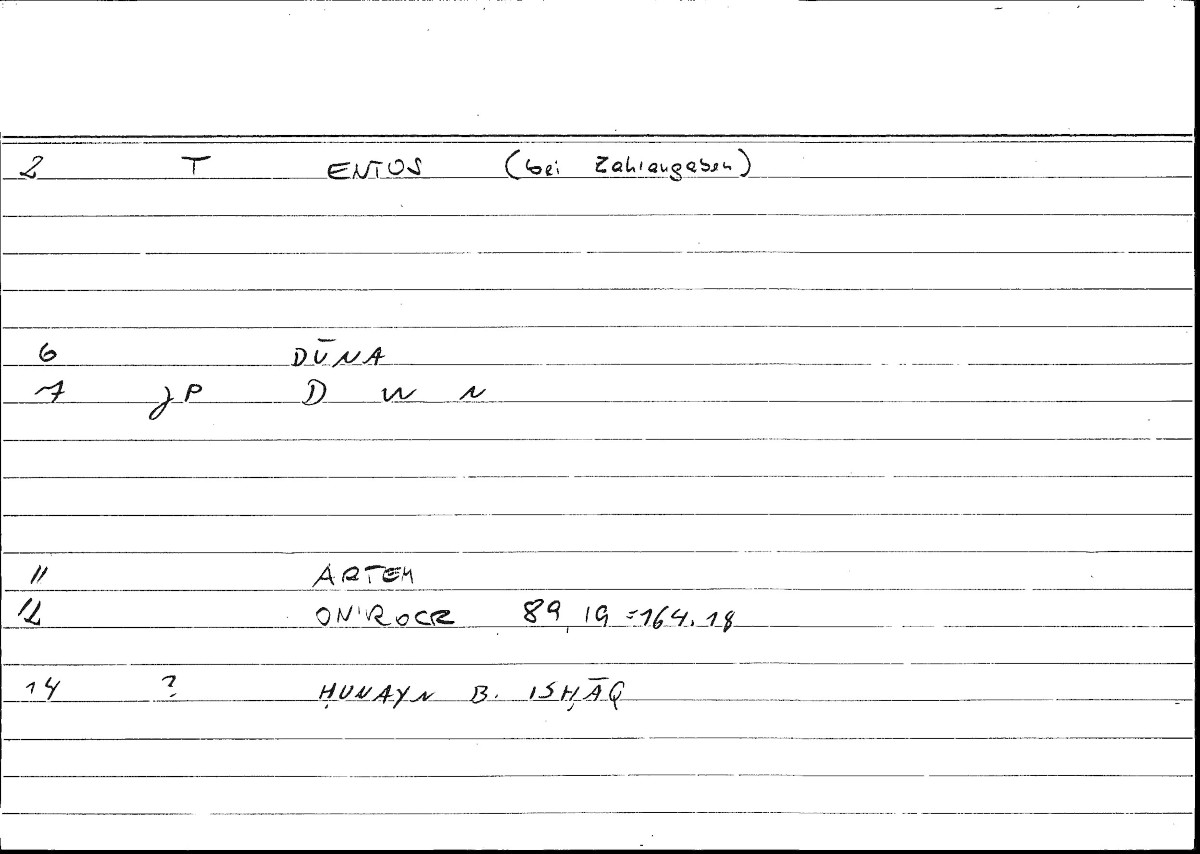 2 T ENTOS (bei Zahlangaben)
6 DŪNA
7 JP D W N
11 ARTEM
12 ONIROCR 89,19 = 164.18
14 ? ḤUNAYN B. ISḤĀQ